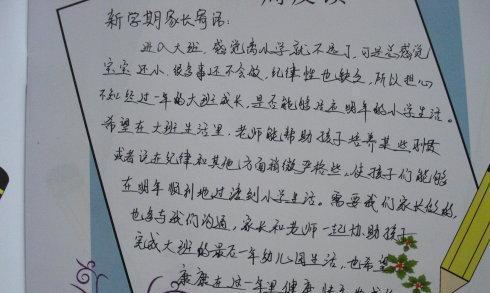 新学期家长寄语：
进入大班，感觉离小学就不远了，可是总感觉
宝宝还小，很多事还不会做，纪律性也缺乏，所以担心
不知经过一年的大班成长，是否能够适应明年的小学生活。
希望在大班生活里，老师能帮助孩子培养某些习惯
或者说在纪律和其他方面稍微严格些，使孩子们能够
在明年顺利地过渡到小学生活。需要我们家长做的，
也多与我们沟通，家长和老师一起协助孩子
完成大班的最后一年幼儿园生活，也希望
康康在这一年里健康快乐